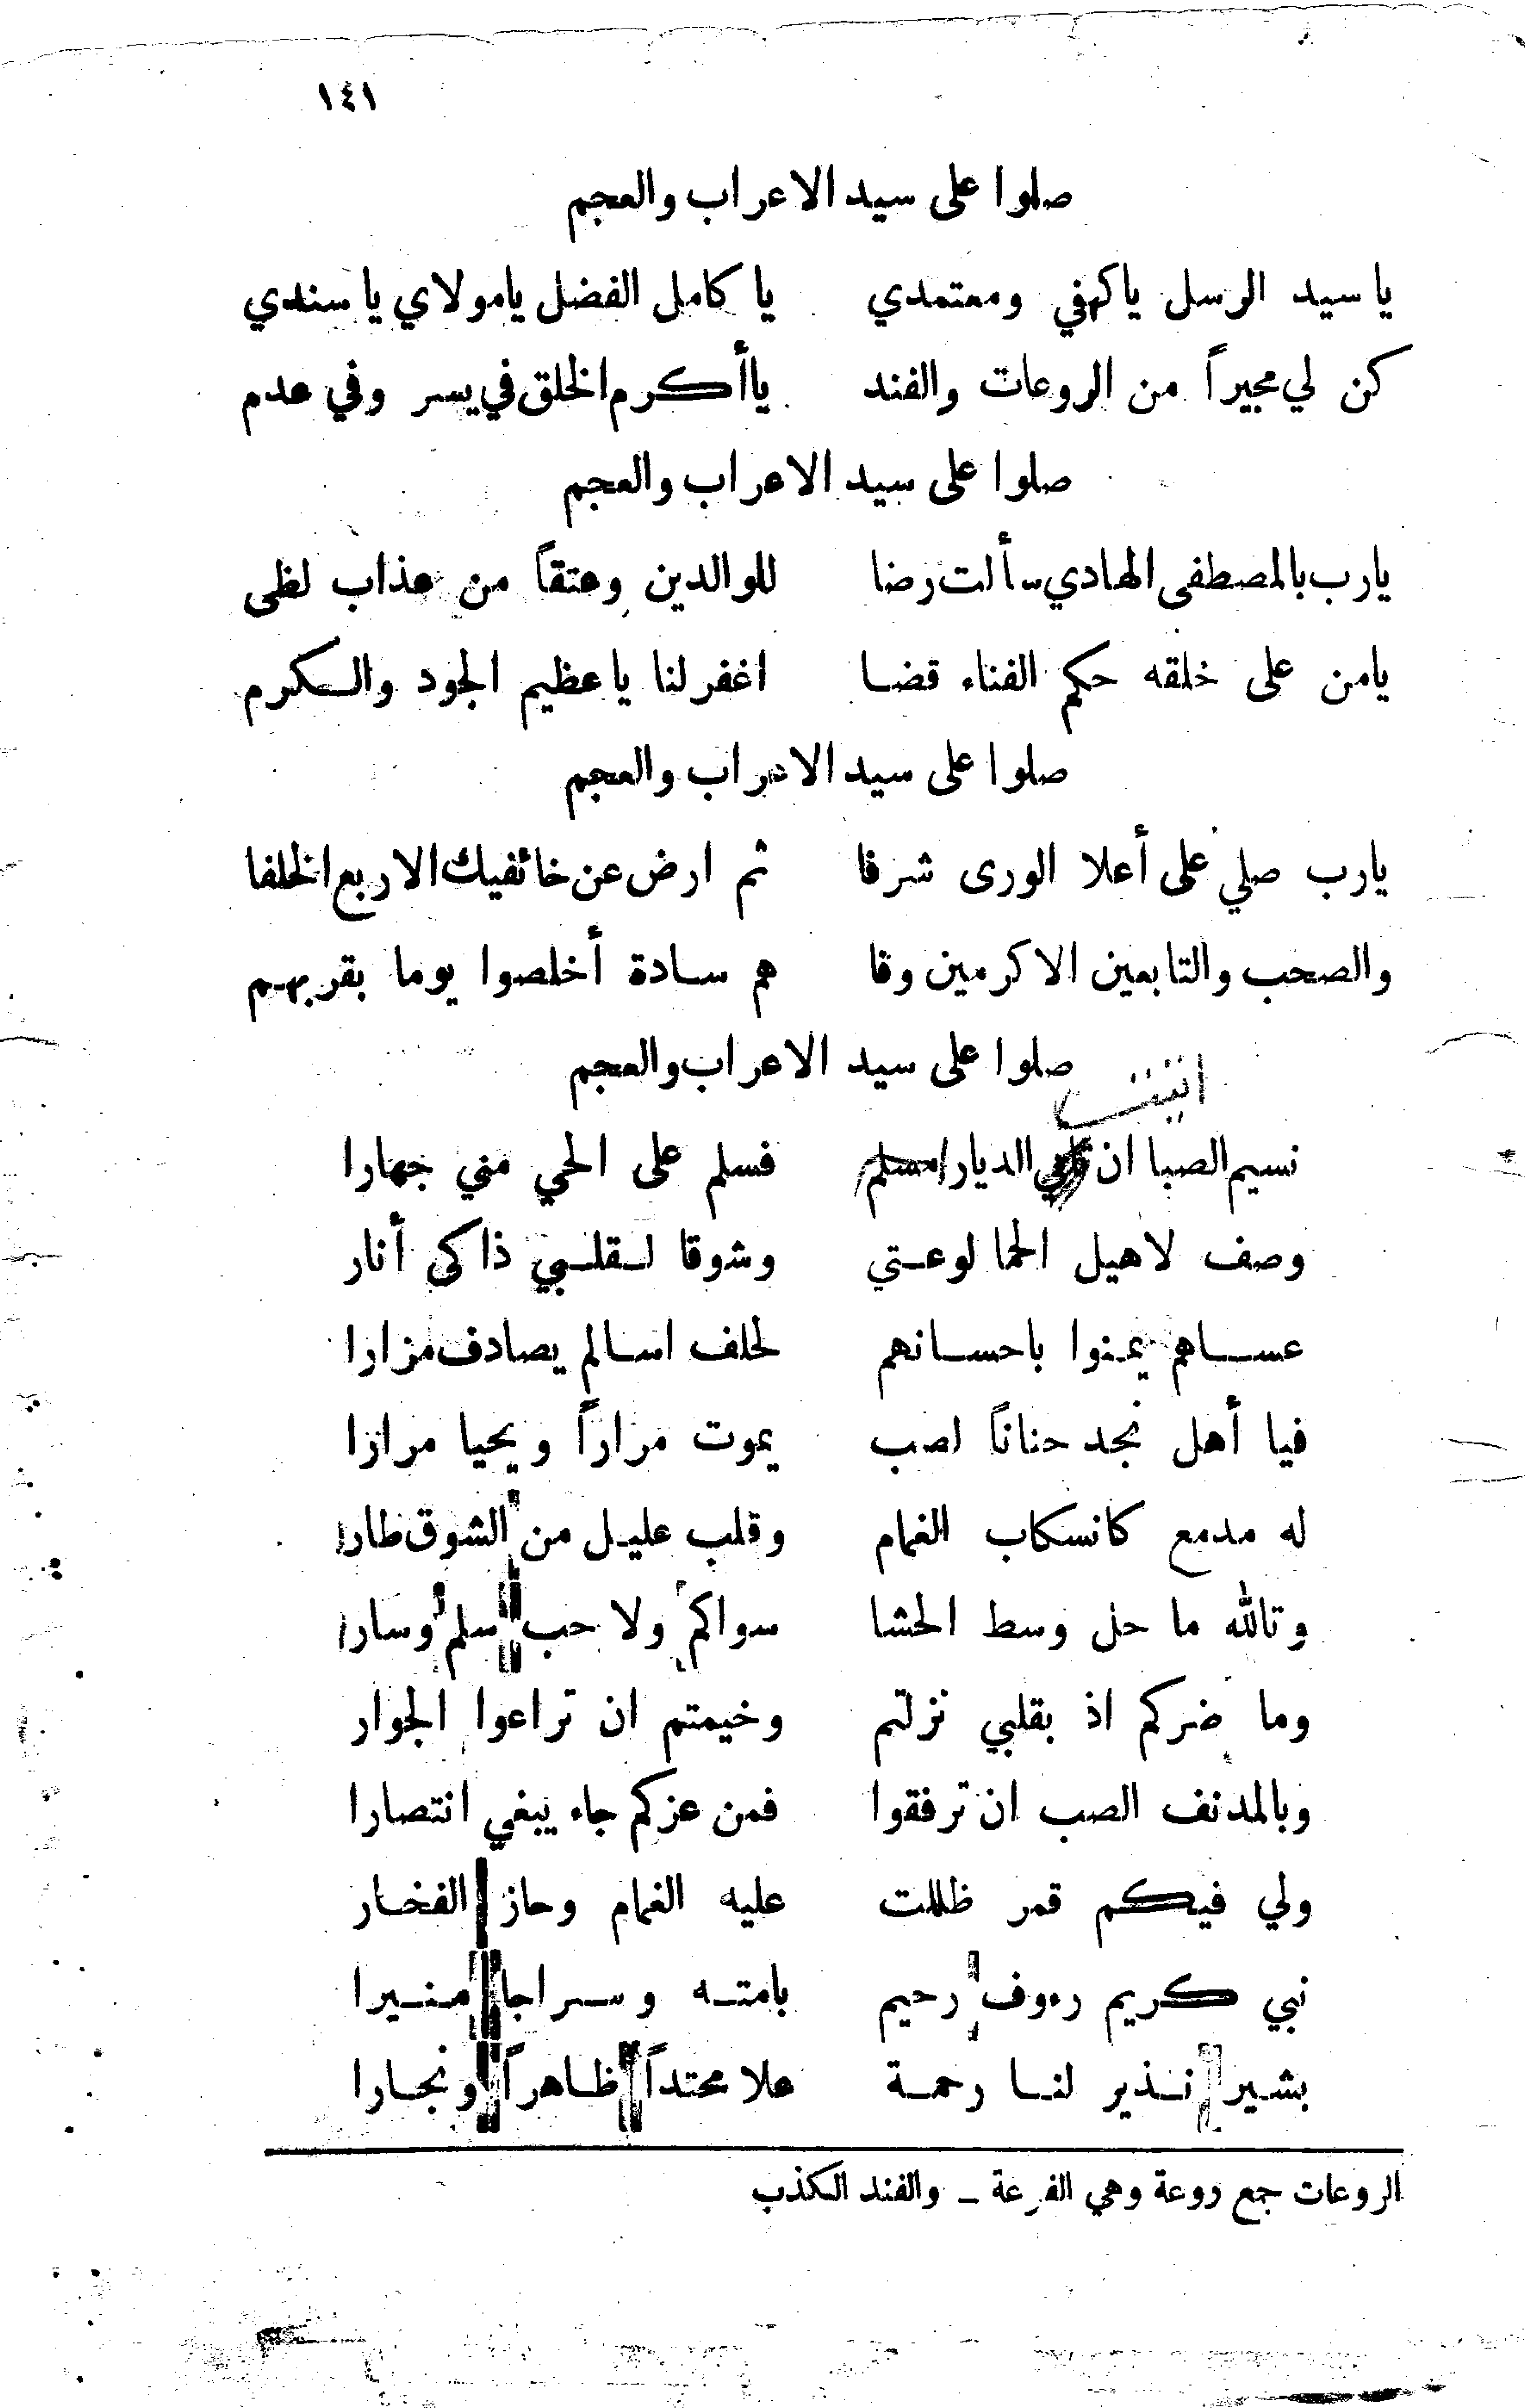 ١٤١
صلوا على سيد الاعراب والعجم
يا سيد الرسل ياكهفي ومعتمدي يا كامل الفضل يامولاي يا سندي
كن لي مجيراً من الروعات والفند ياأكرم الخلق في يسر وفي عدم
صلوا على سيد الاعراب والعجم
يارب بالمصطفى الهادي سألت رضا للوالدين وعتقاً من عذاب لظى
يامن على خلقه حكم الفناء قضا اغفر لنا يا عظيم الجود والكرم
صلوا على سيد الاعراب والعجم
يارب صلي على أعلا الورى شرفا ثم ارض عن خائفيك الاربع الخلفا
والصحب والتابعين الاكرمين وفا هم سادة أخلصوا يوما بقربهم
صلوا على سيد الاعراب والعجم
نسيم الصبا ان الديار فسلم على الحي مني جهارا
وصف لاهيل الحما لوعتي وشوقا لقلبي ذاكى أنار
عساهم يمنوا باحسانهم لحلف اسالم يصادف مزارا
فيا أهل نجد حناناً لصب يموت مراراً ويحيا مرارا
له مدمع كانسكاب الغمام وقلب عليل من الشوق طارا
وتالله ما حل وسط الحشا سواكم ولا حب سلم وسارا
وما ضركم اذ بقلبي نزلتم وخيمتم ان تراعوا الجوار
وبالمدنف الصب ان ترفقوا فمن عزكم جاء يبغي انتصارا
ولي فيكم قمر ظللت عليه الغمام وحاز الفخار
نبي كريم رءوف رحيم بامته وسراجا منيرا
بشير نذير لنا رحمة علا محتداً ظاهراً ونجارا
الروعات جمع روعة وهي الفزعة ـ والفند الكذب